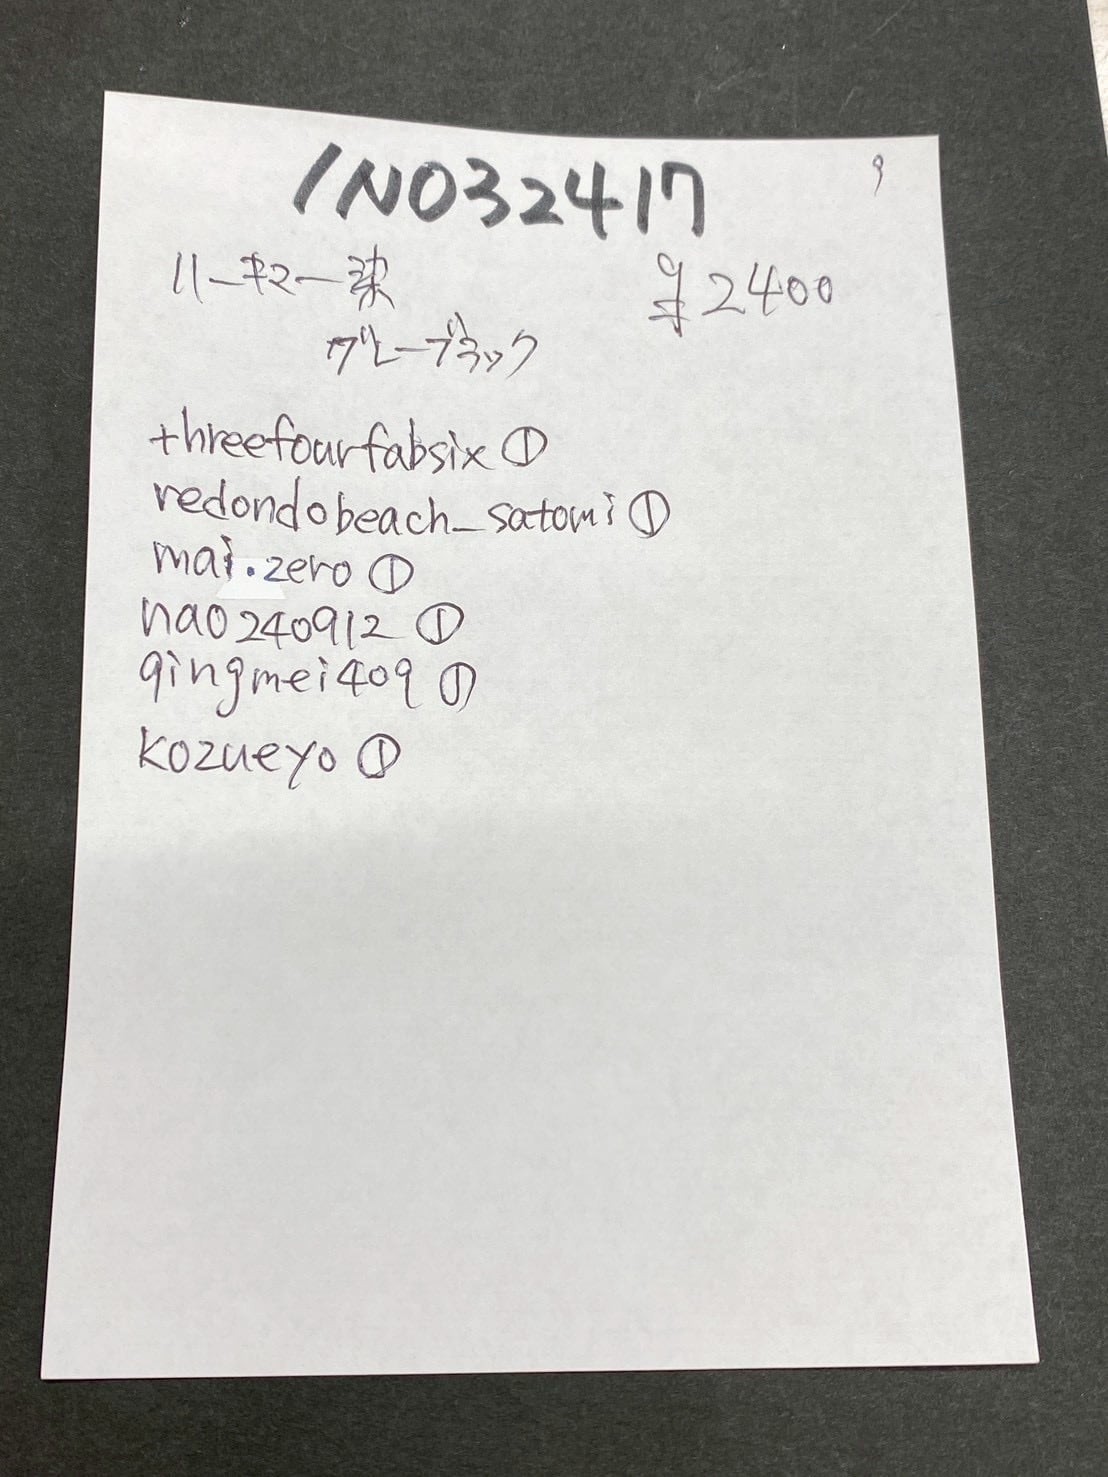 INO32417
9
¥2400
グレーブラック
threefourfabsix ①
redondobeach_satomi ①
mai.zero ①
nao240912 ①
qingmei409 ①
kozueyo ①